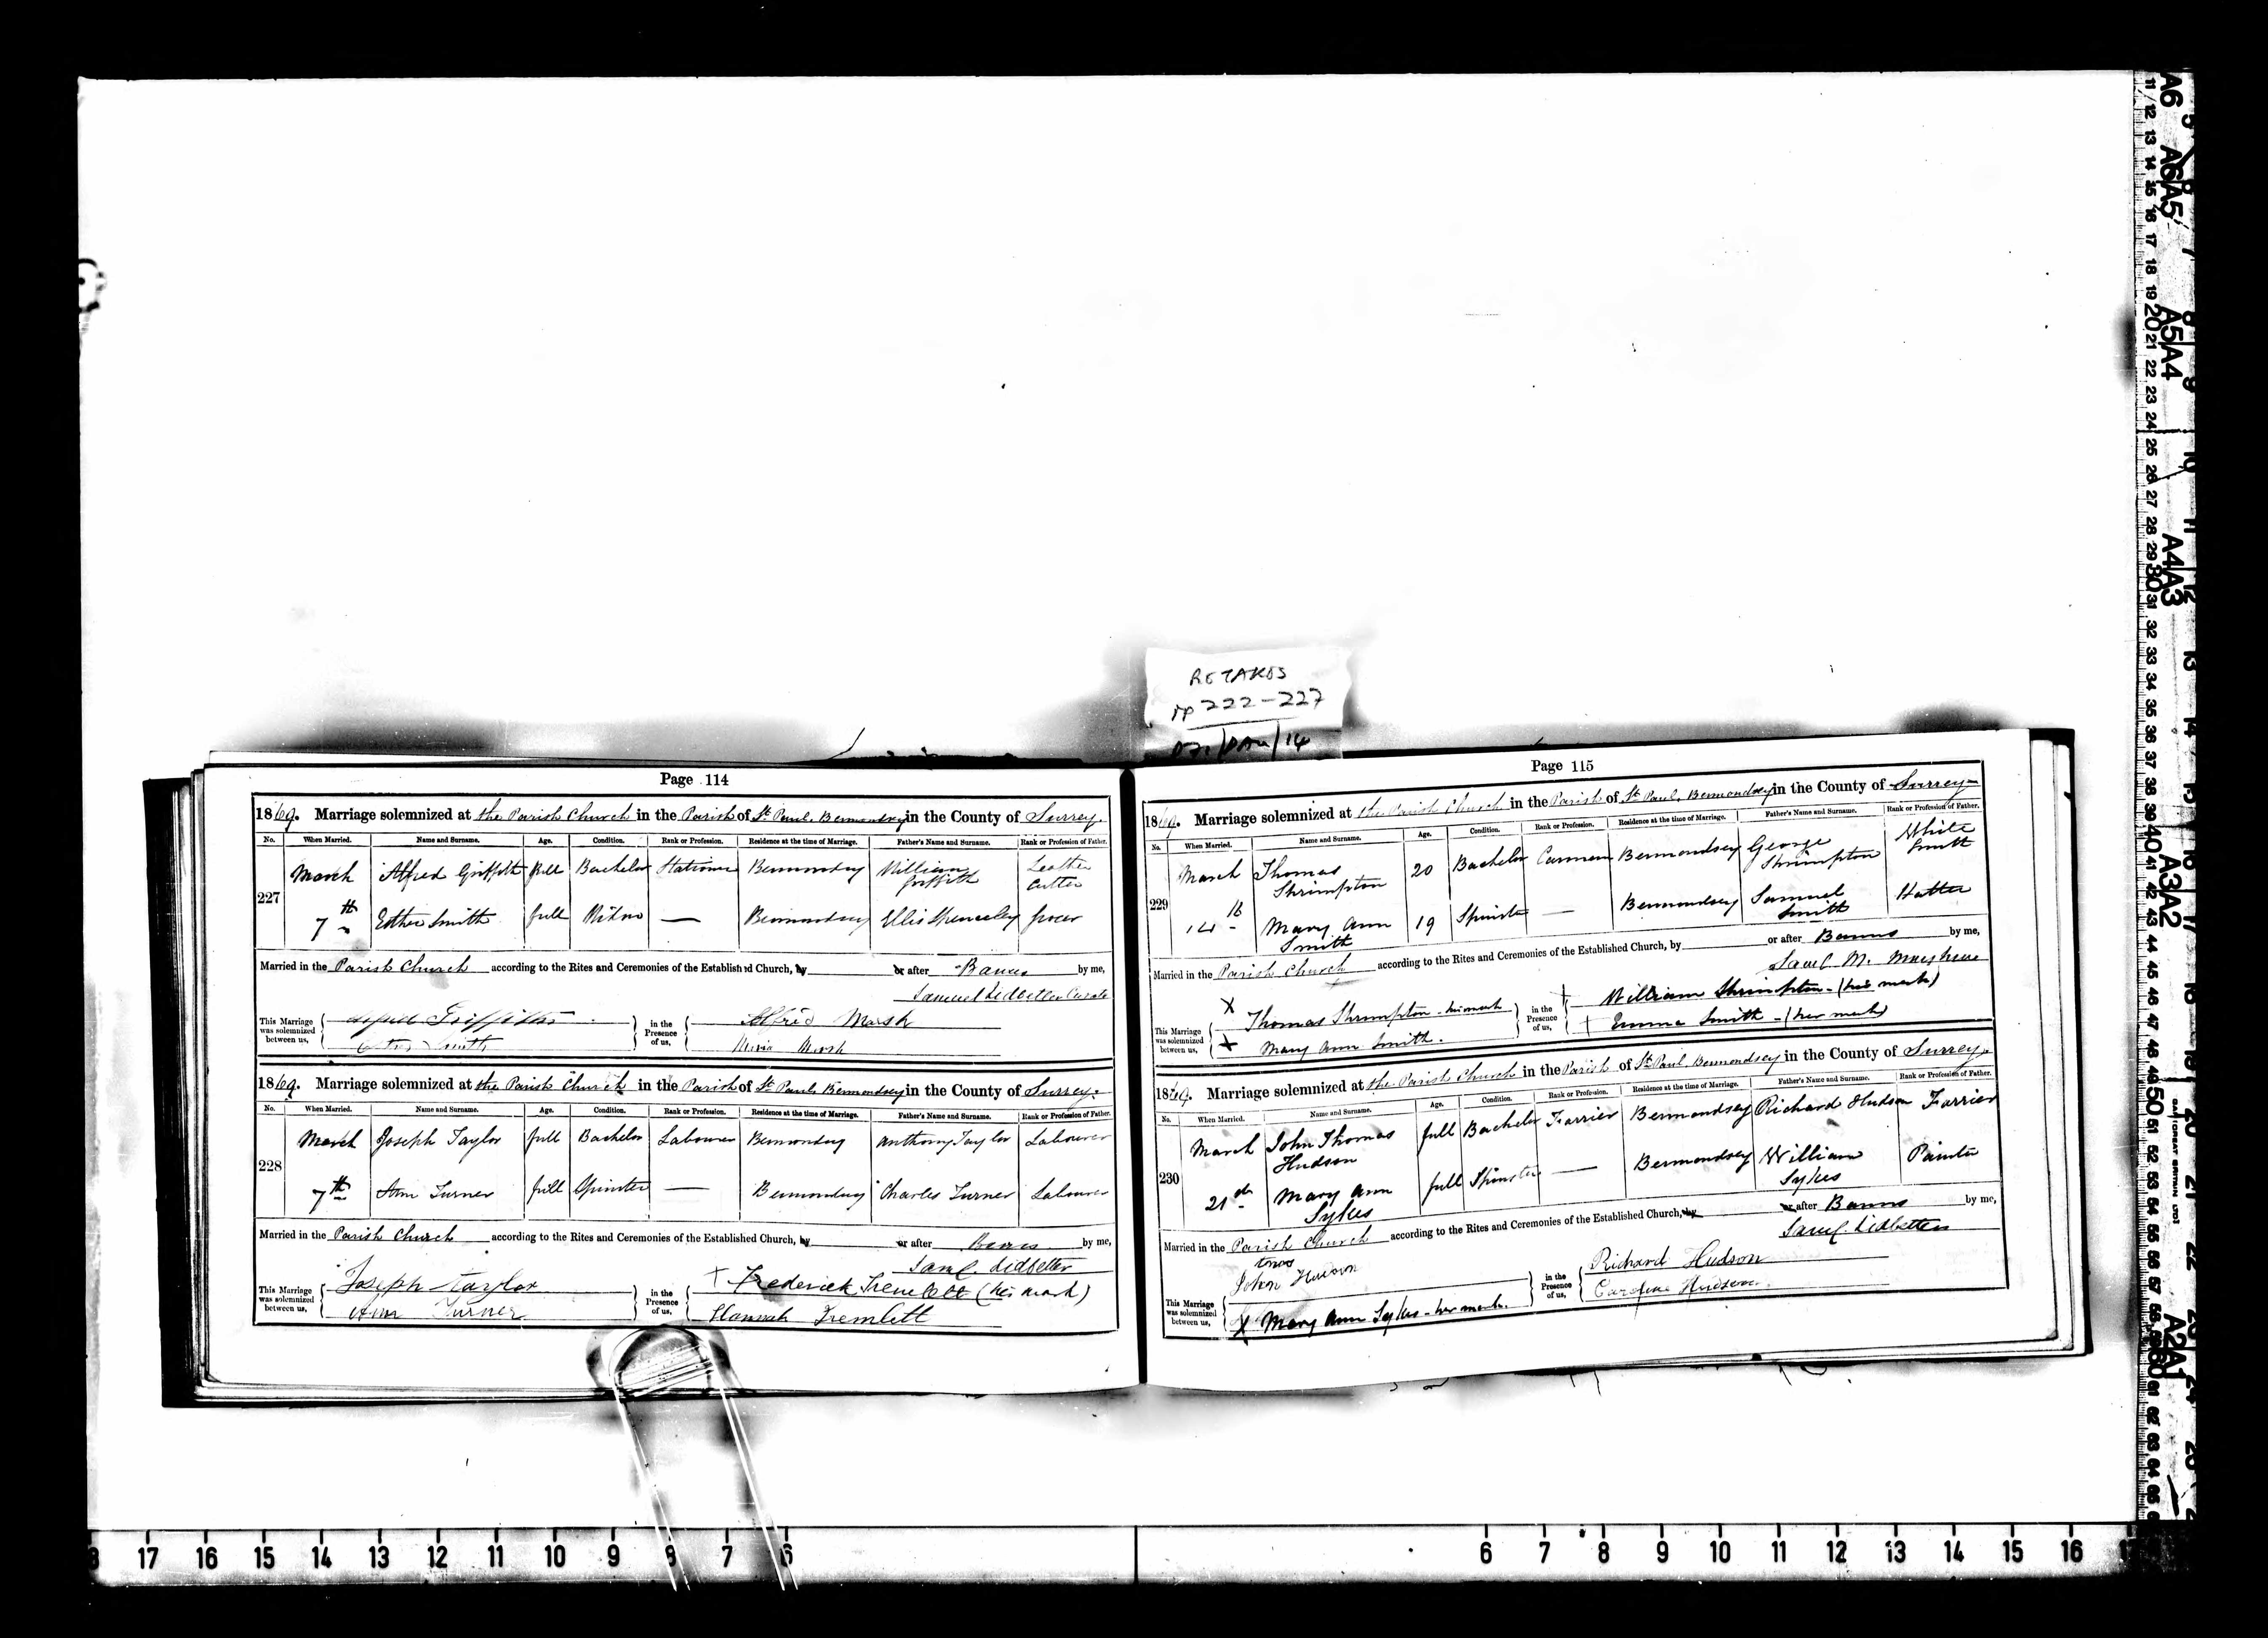 RETAKES
pp 222-227
Page 114
1869. Marriage solemnized at the Parish Church in the Parish of St Paul, Bermondsey in the County of Surrey.
No. When Married. Name and Surname. Age. Condition. Rank or Profession. Residence at the time of Marriage. Father's Name and Surname. Rank or Profession of Father.
227 March 7th Alfred Griffith full Bachelor Stationer Bermondsey William Griffith Leather Cutter
Esther Smith full Widow — Bermondsey Ellis Spenceley Grocer
Married in the Parish Church according to the Rites and Ceremonies of the Established Church, by or after Banns by me,
Samuel Lidbetter Curate
This Marriage was solemnized between us, Alfred Griffith in the Presence of us, Alfred Marsh
Smith Maria Marsh
1869. Marriage solemnized at the Parish Church in the Parish of St Paul Bermondsey in the County of Surrey.
No. When Married. Name and Surname. Age. Condition. Rank or Profession. Residence at the time of Marriage. Father's Name and Surname. Rank or Profession of Father.
228 March 7th Joseph Taylor full Bachelor Labourer Bermondsey Anthony Taylor Labourer
Ann Turner full Spinster — Bermondsey Charles Turner Labourer
Married in the Parish Church according to the Rites and Ceremonies of the Established Church, by or after Banns by me,
Saml. Lidbetter
This Marriage was solemnized between us, Joseph Taylor in the Presence of us, + Frederick Tremlett (his mark)
Ann Turner Hannah Tremlett
Page 115
1869. Marriage solemnized at the Parish Church in the Parish of St Paul, Bermondsey in the County of Surrey
No. When Married. Name and Surname. Age. Condition. Rank or Profession. Residence at the time of Marriage. Father's Name and Surname. Rank or Profession of Father.
229 March 14th Thomas Shrimpton 20 Bachelor Carman Bermondsey George Shrimpton White Smith
Mary Ann Smith 19 Spinster — Bermondsey Samuel Smith Hatter
Married in the Parish Church according to the Rites and Ceremonies of the Established Church, by or after Banns by me,
Saml. M.
This Marriage was solemnized between us, X Thomas Shrimpton - his mark in the Presence of us, + William Shrimpton - (his mark)
X Mary Ann Smith. + Emma Smith - (her mark)
1869. Marriage solemnized at the Parish Church in the Parish of St Paul, Bermondsey in the County of Surrey.
No. When Married. Name and Surname. Age. Condition. Rank or Profession. Residence at the time of Marriage. Father's Name and Surname. Rank or Profession of Father.
230 March 21st John Thomas Hudson full Bachelor Farrier Bermondsey Richard Hudson Farrier
Mary Ann Sykes full Spinster — Bermondsey William Sykes Painter
Married in the Parish Church according to the Rites and Ceremonies of the Established Church, by or after Banns by me,
Saml. Lidbetter
This Marriage was solemnized between us, John Hudson in the Presence of us, Richard Hudson
X Mary Ann Sykes - her mark. Caroline Hudson